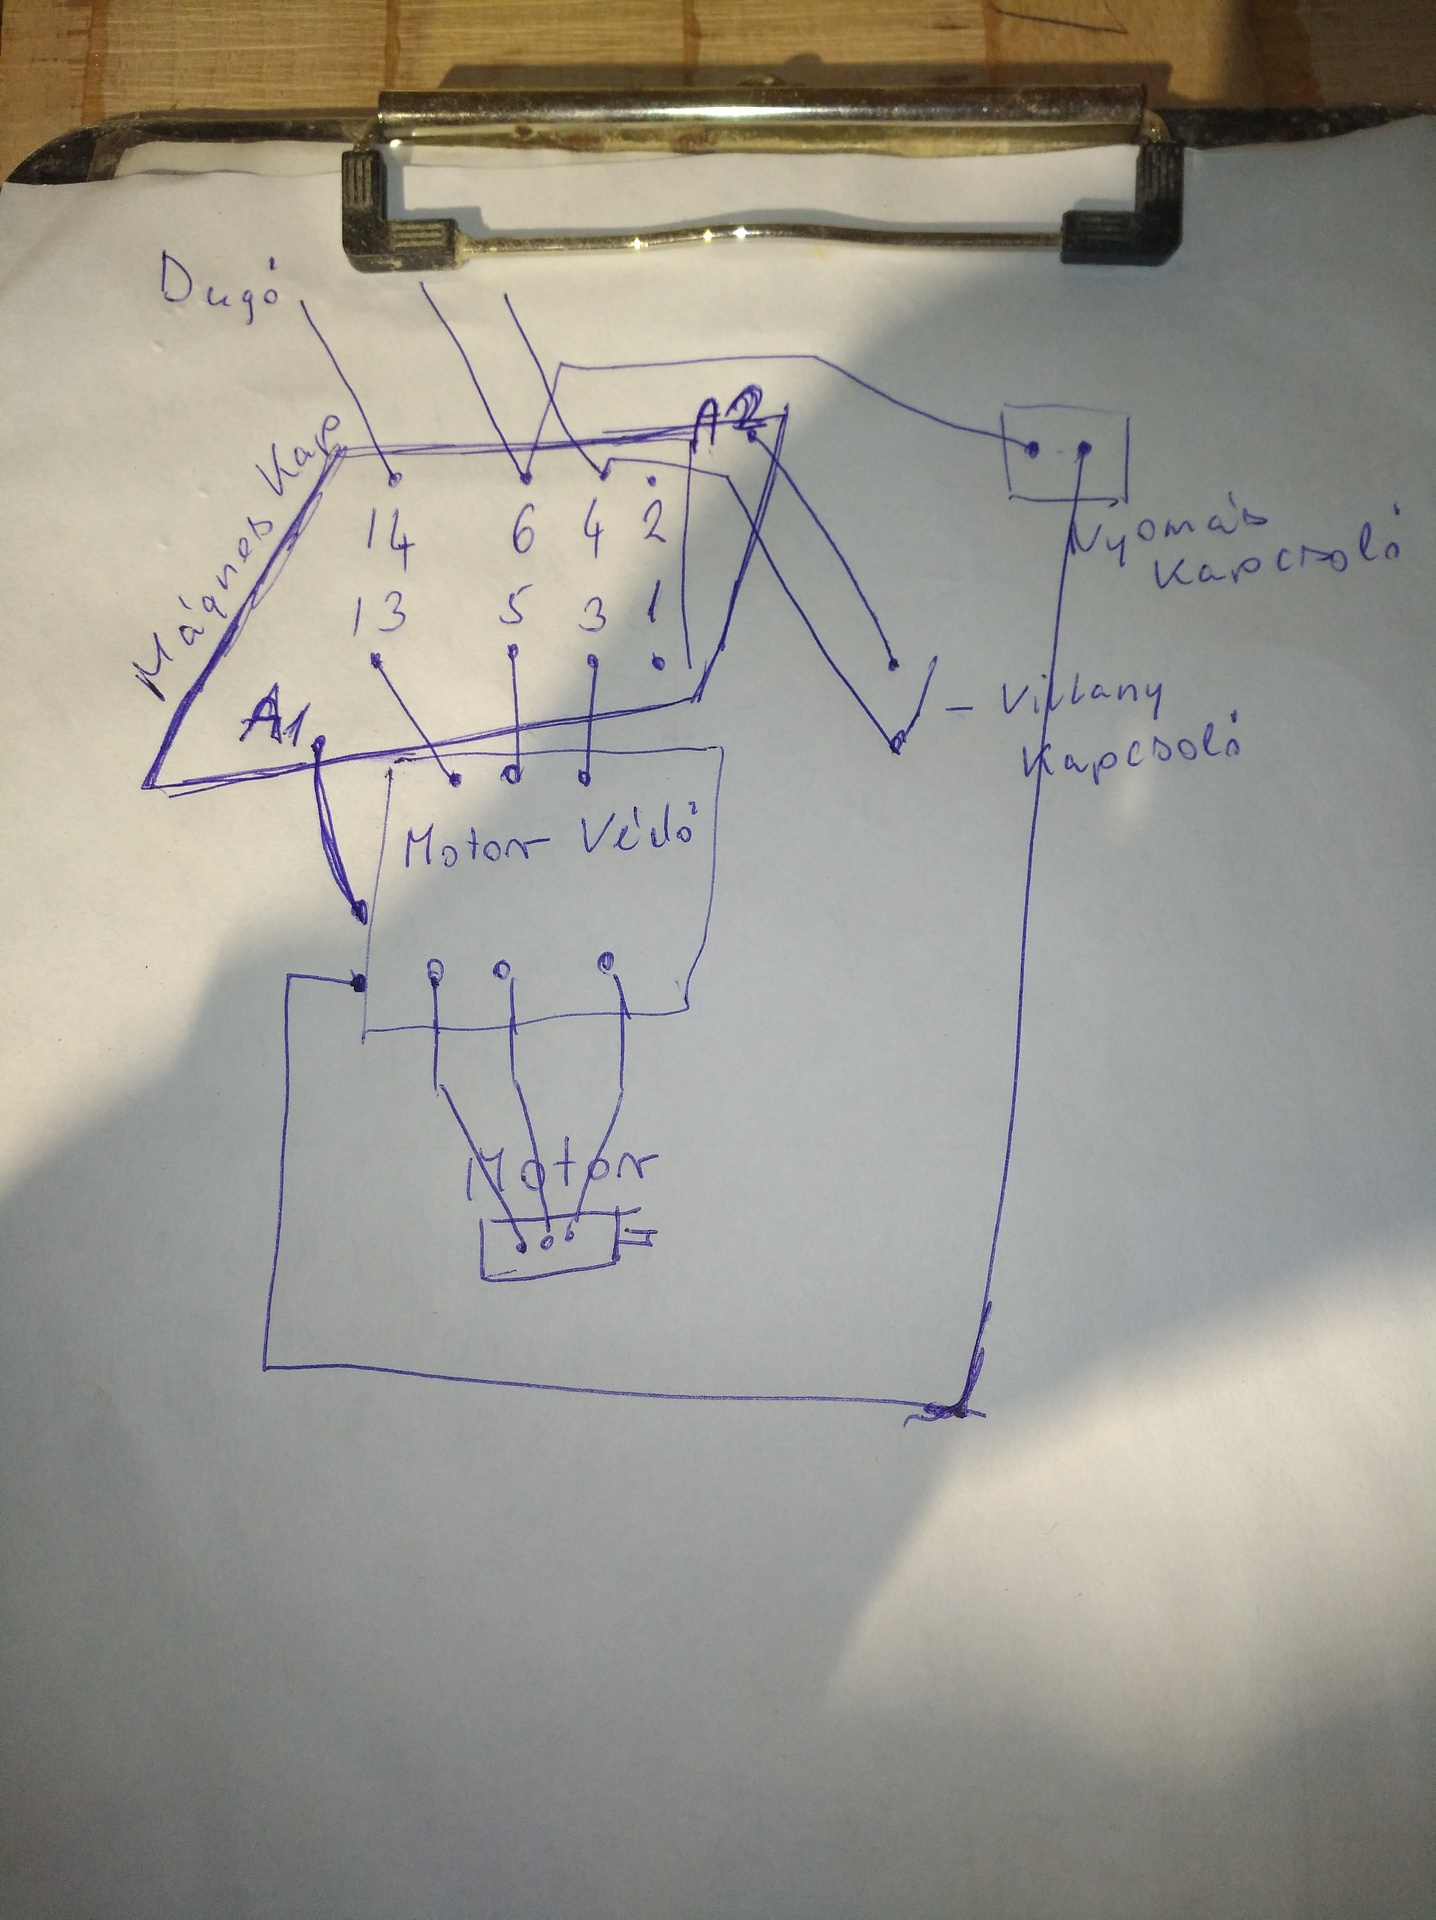 Dugó
Mágnes Kap
A2
14 6 4 2
13 5 3 1
A1
Nyomás
Kapcsoló
- Villany
Kapcsoló
Motor Védő
Motor